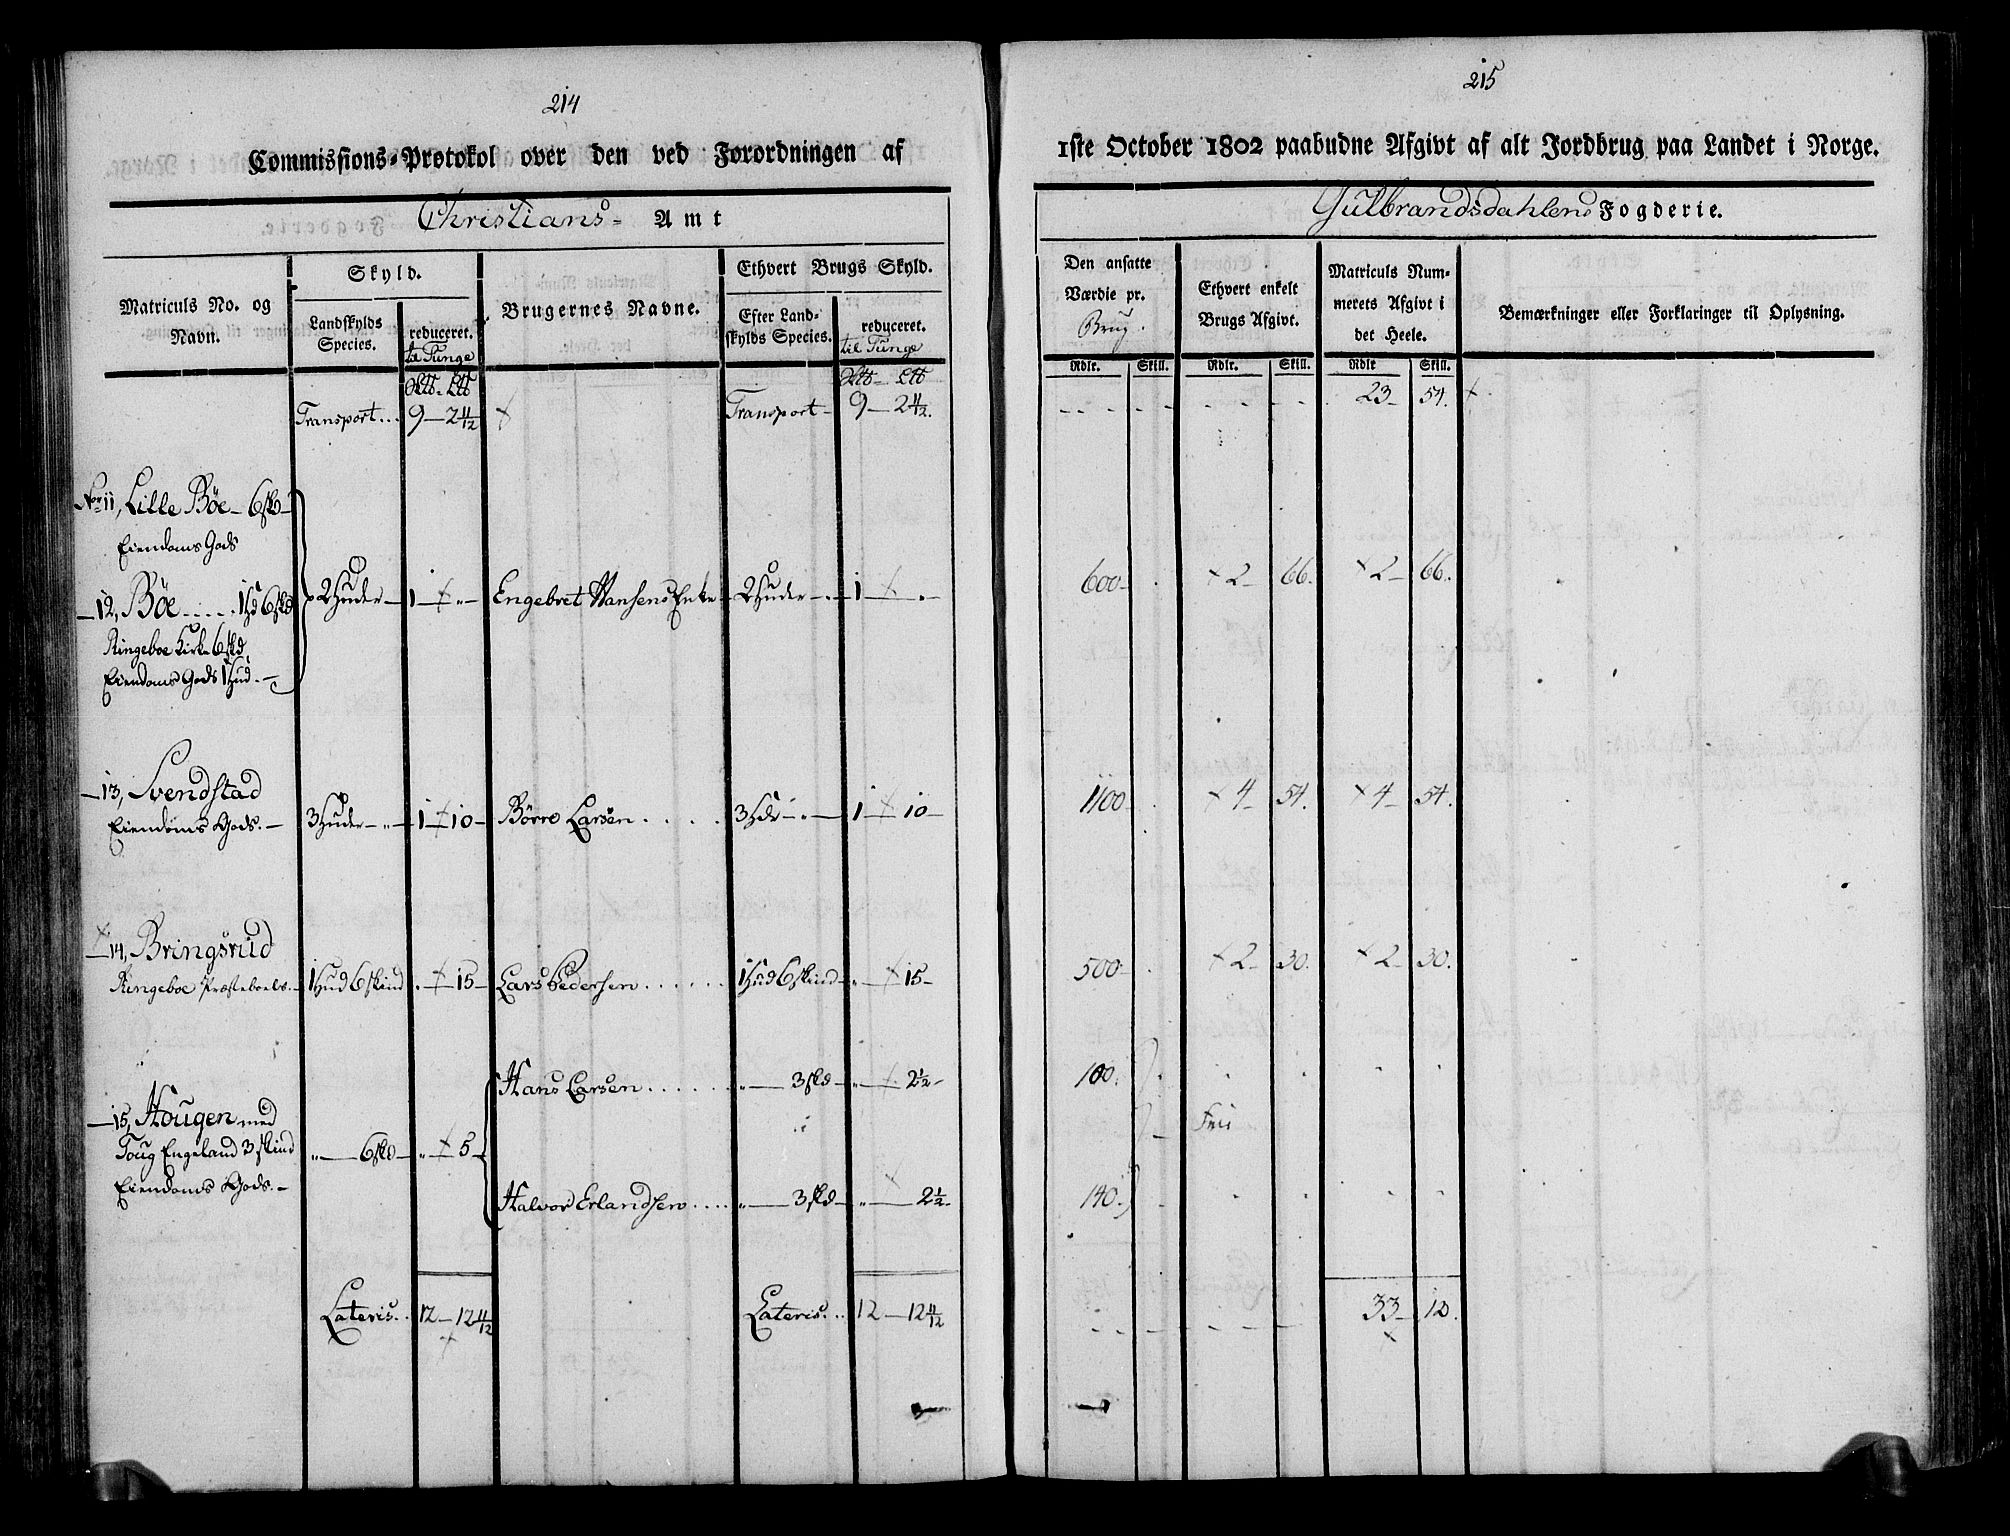 214
Commissions-Protokol over den ved Forordningen af
Christians- Amt
Matriculs No. og Navn.
Skyld.
Landskylds Species.
reduceret.
til Tunge
Brugernes Navne.
Ethvert Brugs Skyld.
Efter Landskylds Species.
reduceret.
til Tunge
Transport... 9—2 4/12 Transport— 9—2 4/12.
No 11, Lille Böe— 6skd—
Eiendoms Gods
—12, Böe.....1Hd 6skd
Ringeboe Kirke 6skd,
Eiendoms Gods 1Hud.—
2Huder— 1—"— Engebret Hansens Enke— 2Huder— 1—"—
—13, Svendstad
Eiendoms Gods.— 3Huder—"— 1—10— Börre Larsen..... 3Hdr—"— 1—10—
—14, Bringsrud
Ringeboe Præsteboels.— 1Hud 6skind .—15— Lars Pedersen...... 1Hud 6skind— "—15—
Hans Larsen...... "— 3skd— "— 2½—
—15, Hougen med
Toug Engeland 3skind "—6skd— "—5—
Eiendoms Gods.—
Halvor Erlandsen.... "— 3skd— "— 2½—
Lateris.. 12—12 4/12 Lateris... 12—12 4/12
215
1ste October 1802 paabudne Afgivt af alt Jordbrug paa Landet i Norge.
Gulbrandsdahlens Fogderie.
Den ansatte Værdie pr.
Brug.
Ethvert enkelt Brugs Afgivt.
Matriculs Nummerets Afgivt i det Heele.
Bemærkninger eller Forklaringer til Oplysning.
Rdlr. Skill. Rdlr. Skill. Rdlr Skill.
23— 54.
600— 2— 66. 2— 66.
1100— 4— 54. 4— 54.
500— 2— 30. 2— 30.
100.
Frii
140.
33— 12.